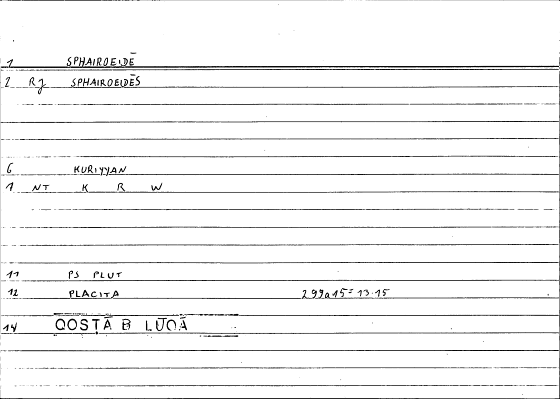 1 SPHAIROEIDĒ
2 Rj SPHAIROEIDĒS
6 KURIYYAN
1 NT K R W
11 PS PLUT
12 PLACITA 299a15 = 13.15
14 QOSṬĀ B LŪQĀ